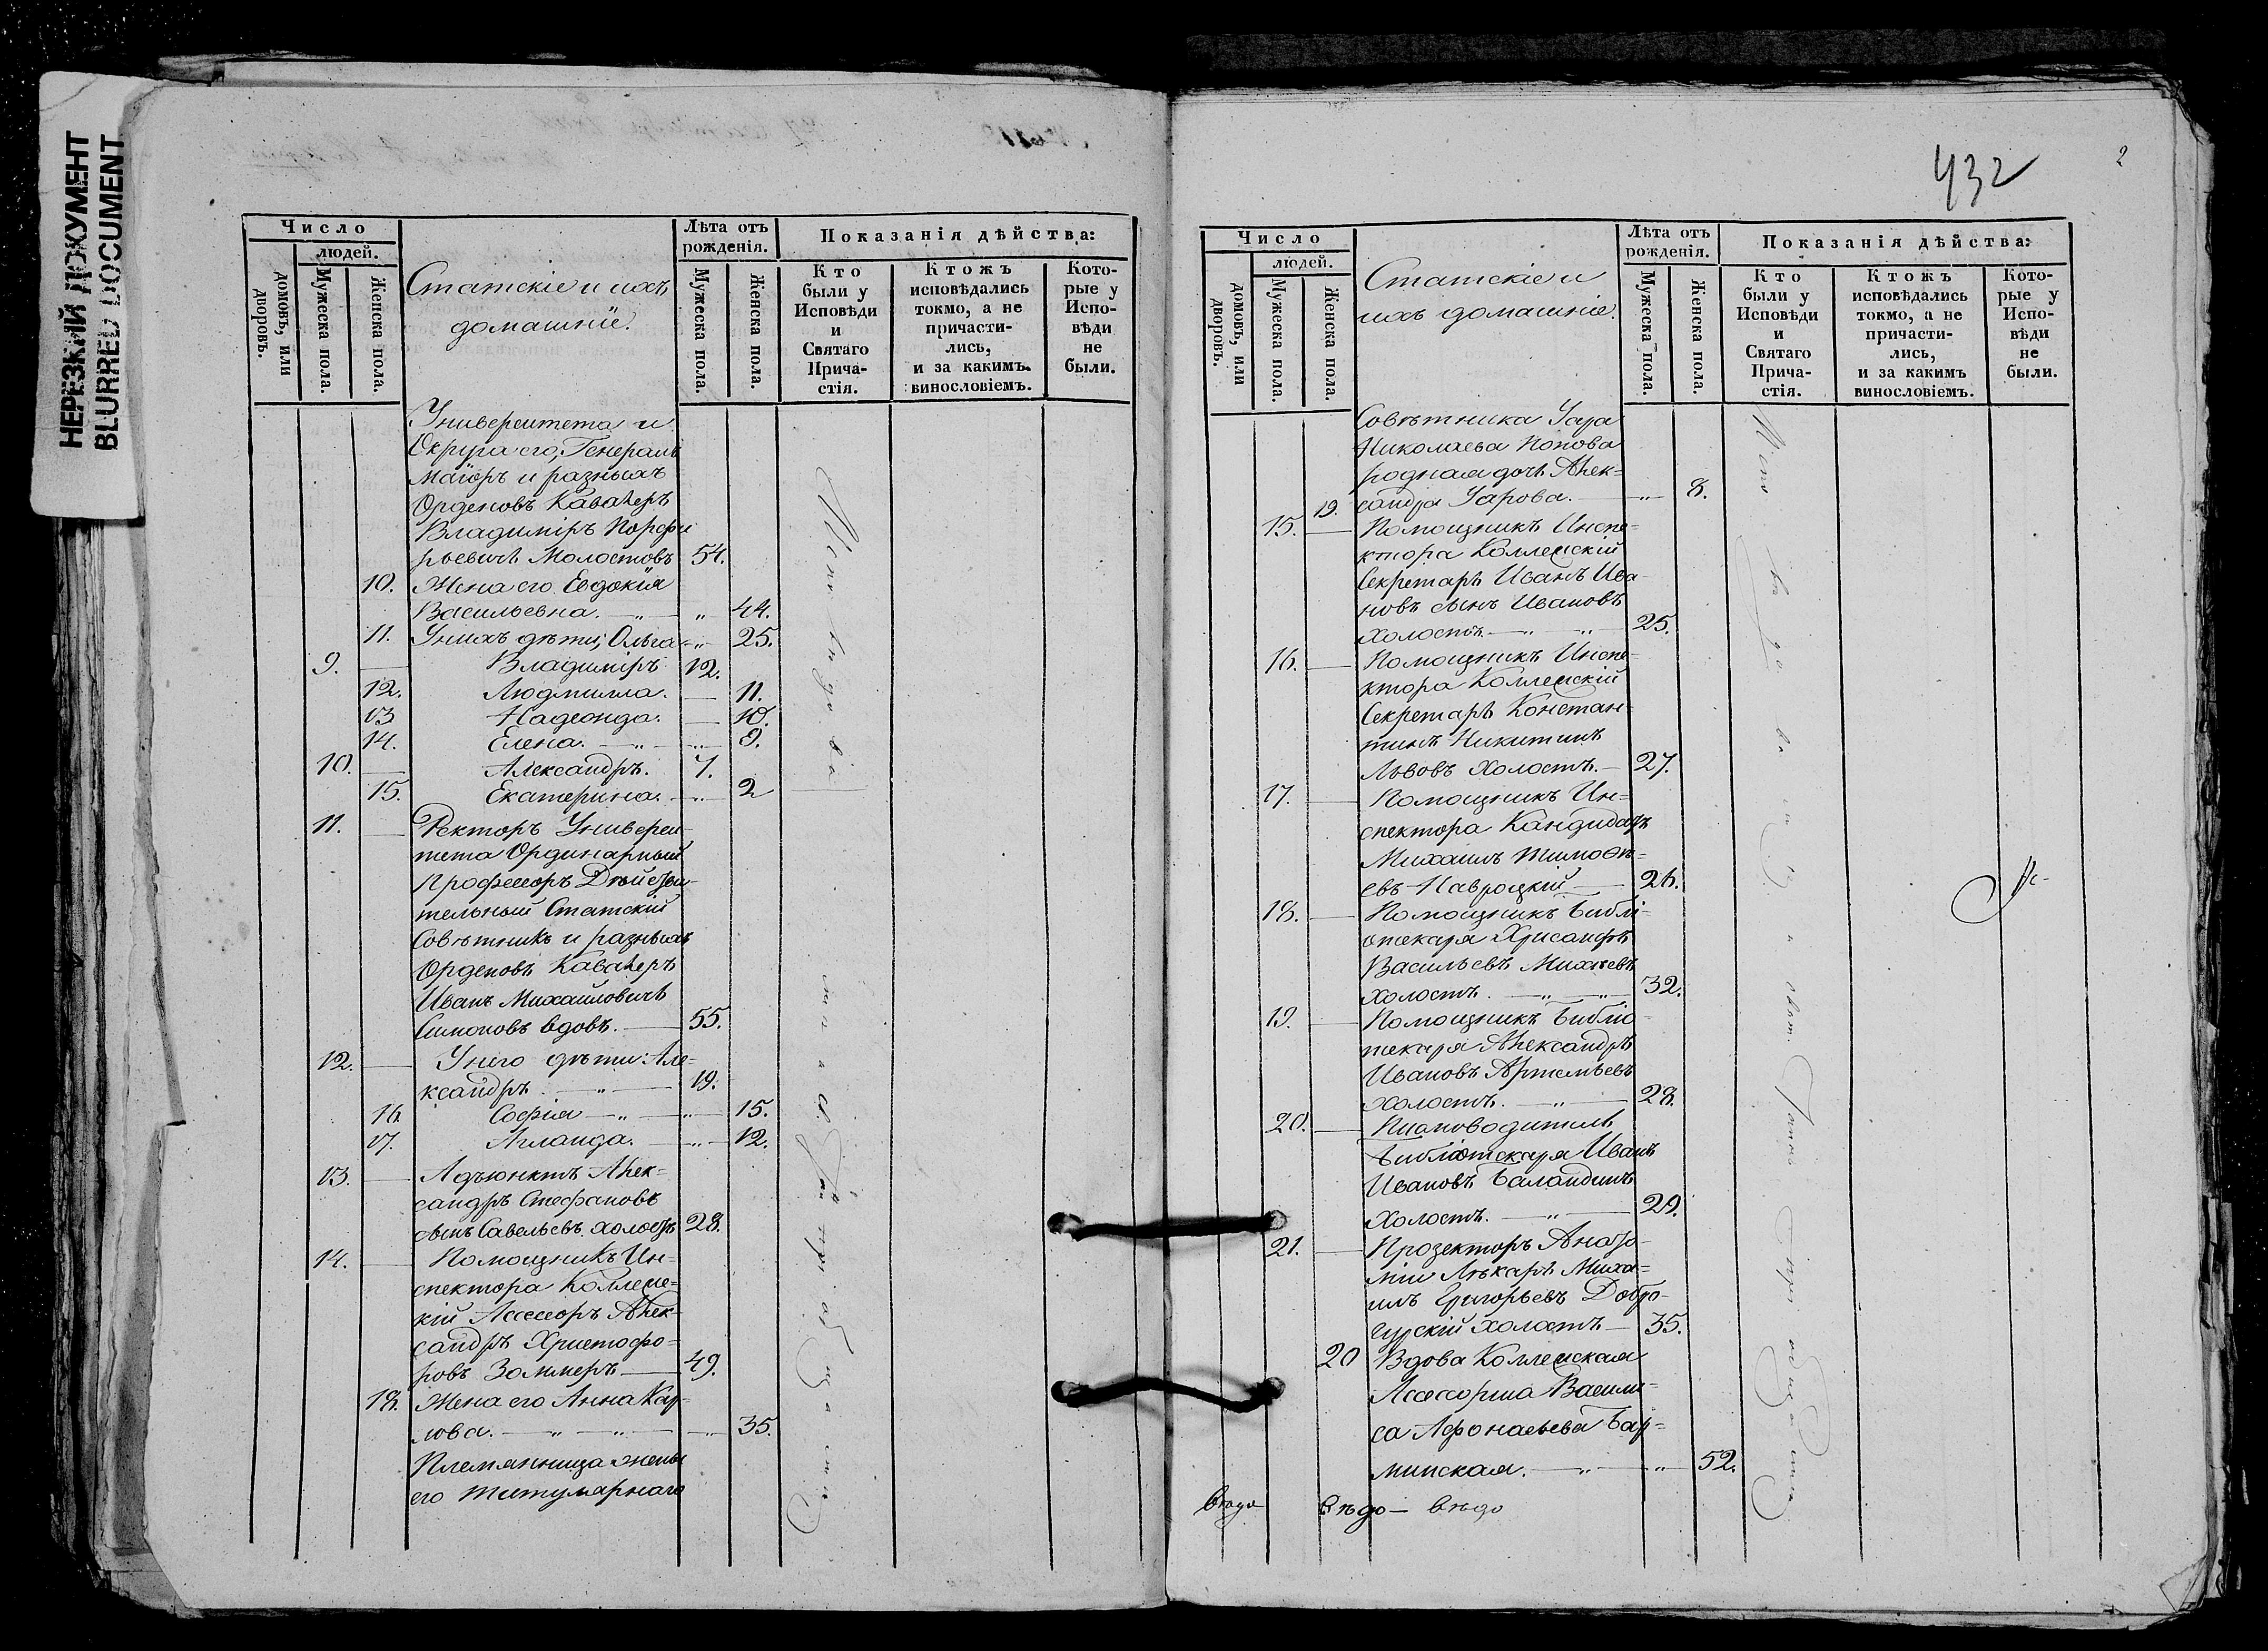 НЕРЕЗКИЙ ДОКУМЕНТ
BLURRED DOCUMENT
Число
людей.
домовъ, или дворовъ.
Мужеска пола.
Женска пола.
Статскіе и ихъ
домашніе.
Лѣта отъ рожденія.
Мужеска пола.
Женска пола.
Показанія дѣйства:
Кто были у Исповѣди и Святаго Прича-стія.
Ктожъ исповѣдались токмо, а не причасти-лись, и за какимъ винословіемъ.
Кото-рые у Испо-вѣди не были.
Университета и
Округа его, Генералъ
Маіоръ и разныхъ
Орденовъ Кавалеръ
Владиміръ Порфи
рьевичъ Молостовъ 54.
10. Жена его Евдокія
Васильевна. — „ — „ 44.
11. У нихъ дѣти; Ольга — „ 25.
9. — Владиміръ 12.
12. Людмилла. — 11.
13 Надежда. — 10.
14. Елена. — „ — „ 9.
10. — Александръ. 7.
15. Екатерина. — „ 2
11. — Ректоръ Универси-
тета Ординарный
Профессоръ Дѣйстви-
тельный Статскій
Совѣтникъ и разныхъ
Орденовъ Кавалеръ
Иванъ Михайловичъ
Симоновъ вдовъ. — 55.
12. — У него дѣти: Але-
ксандръ. — „ — 19.
16. Софія — „ — „ — 15.
17. Аглаида. — „ — 12.
13. — Адъюнктъ Алек-
сандръ Стефановъ
сынъ Савельевъ холостъ 28.
14. — Помощникъ Ин-
спектора Коллеж-
кій Ассессоръ Алек-
сандръ Христофо-
ровъ Зоммеръ — 49.
18. Жена его Анна Кар-
лова. — „ — „ — „ 35.
Племянница жены
его Титулярнаго
432
2
Число
людей.
домовъ, или дворовъ.
Мужеска пола.
Женска пола.
Статскіе и
ихъ домашніе.
Лѣта отъ рожденія.
Мужеска пола.
Женска пола.
Показанія дѣйства:
Кто были у Исповѣди и Святаго Прича-стія.
Ктожъ исповѣдались токмо, а не причасти-лись, и за какимъ винословіемъ.
Кото-рые у Испо-вѣди не были.
Совѣтника Уара
Николаева Попова
родная дочь Алек-
19. сандра Уарова. — „ 8.
15. — Помощникъ Инспе-
ктора Коллежскій
Секретарь Иванъ Ива-
новъ сынъ Ивановъ
холостъ. — „ „ — 25.
16. — Помощникъ Инспе-
ктора Коллежскій
Секретарь Констан-
тинъ Никитинъ
Львовъ холостъ. — 27.
17. — Помощникъ Ин-
спектора Кандидатъ
Михаилъ Тимоѳѣ-
евъ Навроцкій — 26.
18. — Помощникъ Библі-
отекаря Хрисанфъ
Васильевъ Михѣевъ
холостъ. — „ — „ — 32.
19. — Помощникъ Библіо-
текаря Александръ
Ивановъ Артемьевъ
холостъ. — „ — 28.
20. — Писмоводитель
Библіотекаря Иванъ
Ивановъ Баландинъ
холостъ. — „ — 29.
21. — Прозекторъ Анато-
міи Лѣкарь Миха-
илъ Григорьевъ Добро-
гурскій холостъ — 35.
20 Вдова Коллежская
Асессорша Васили-
са Афонасьева Бар-
минская. — „ — „ 52.